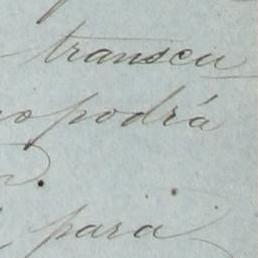 transcu
no podrá
para